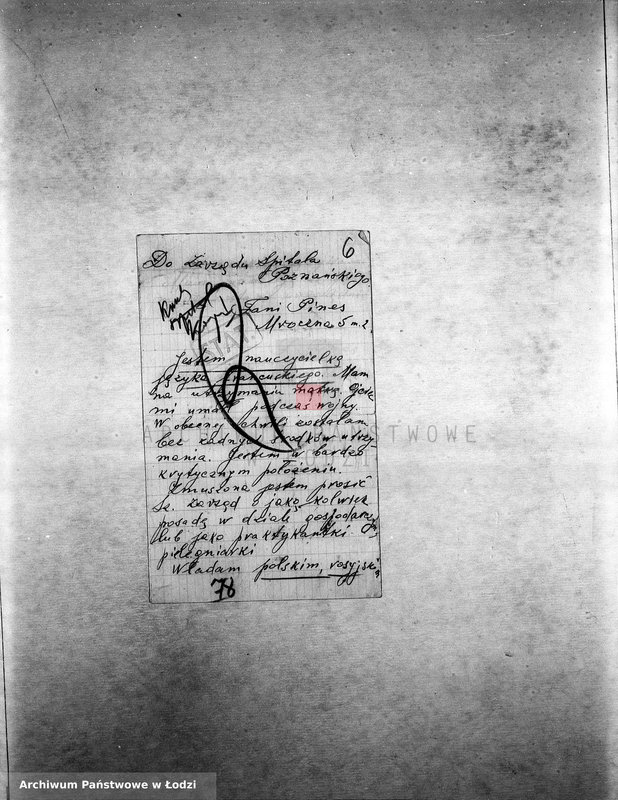 6
Do Zarządu Szpitala
Poznańskiego
Fani Pines
Mroczna 5 m. 2
Jestem nauczycielką
języka francuskiego. Mam
na utrzymaniu matkę. Ojciec
mi umarł podczas wojny.
W obecnej chwili zostałam
bez żadnych środków utrzy
mania. Jestem w bardzo
krytycznym położeniu.
Zmuszona jestem prosić
Sz. Zarząd o jaką kolwiek
posadę w dziale gospodarczym
lub jako praktykantki
pielęgniarki
Władam polskim, rosyjskim
78
ARCHIWUM PAŃSTWOWE
Archiwum Państwowe w Łodzi